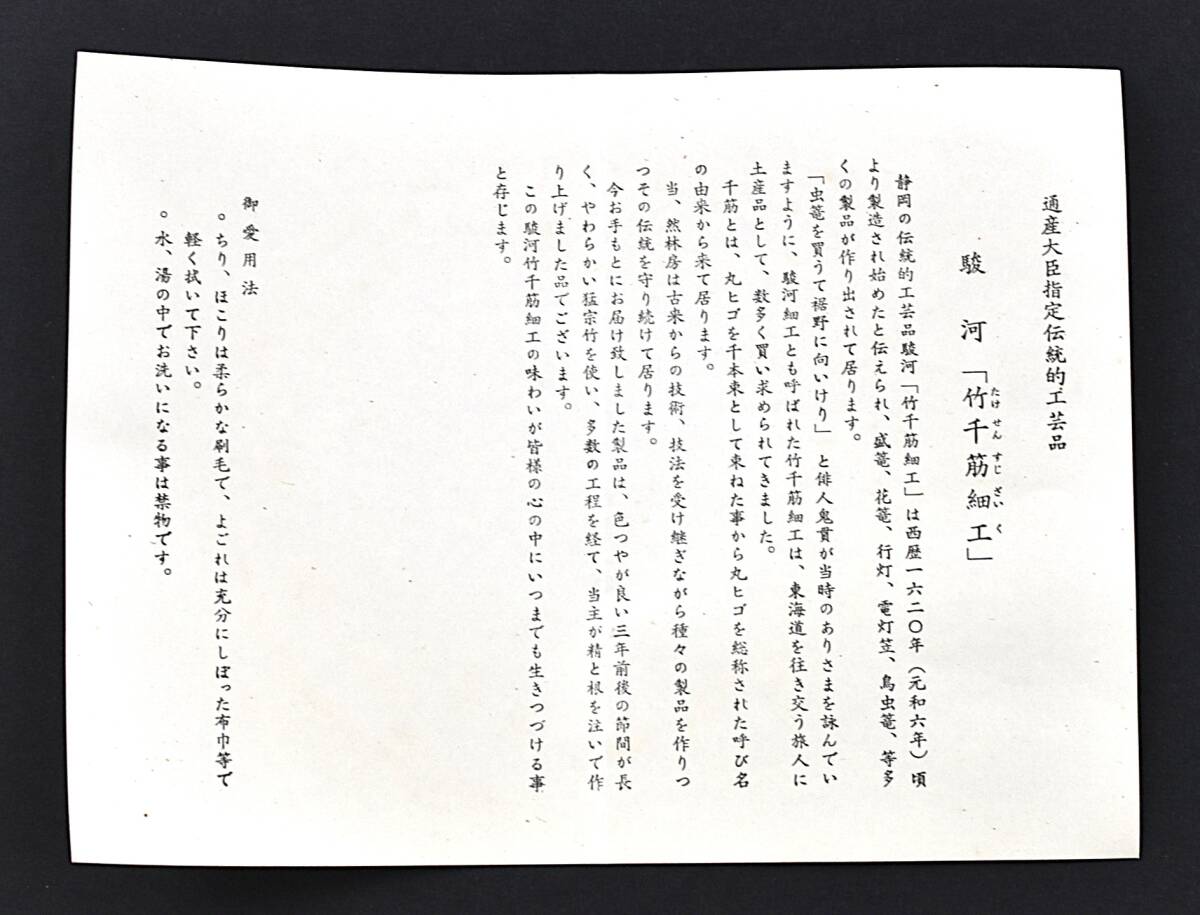 通産大臣指定伝統的工芸品
駿河「竹千筋細工」
たけせんすじざいく
静岡の伝統的工芸品駿河「竹千筋細工」は西歴一六二〇年(元和六年)頃
より製造され始めたと伝えられ、盛篭、花篭、行灯、電灯笠、鳥虫篭、等多
くの製品が作り出されて居ります。
「虫篭を買うて裾野に向いけり」と俳人鬼貫が当時のありさまを詠んでい
ますように、駿河細工とも呼ばれた竹千筋細工は、東海道を往き交う旅人に
土産品として、数多く買い求められてきました。
千筋とは、丸ヒゴを千本束として束ねた事から丸ヒゴを総称された呼び名
の由来から来て居ります。
当、然林房は古来からの技術、技法を受け継ぎながら種々の製品を作りつ
つその伝統を守り続けて居ります。
今お手もとにお届け致しました製品は、色つやが良い三年前後の節間が長
く、やわらかい猛宗竹を使い、多数の工程を経て、当主が精と根を注いで作
り上げました品でございます。
この駿河竹千筋細工の味わいが皆様の心の中にいつまでも生きつづける事
と存じます。
御愛用法
。ちり、ほこりは柔らかな刷毛で、よごれは充分にしぼった布巾等で
軽く拭いて下さい。
。水、湯の中でお洗いになる事は禁物です。